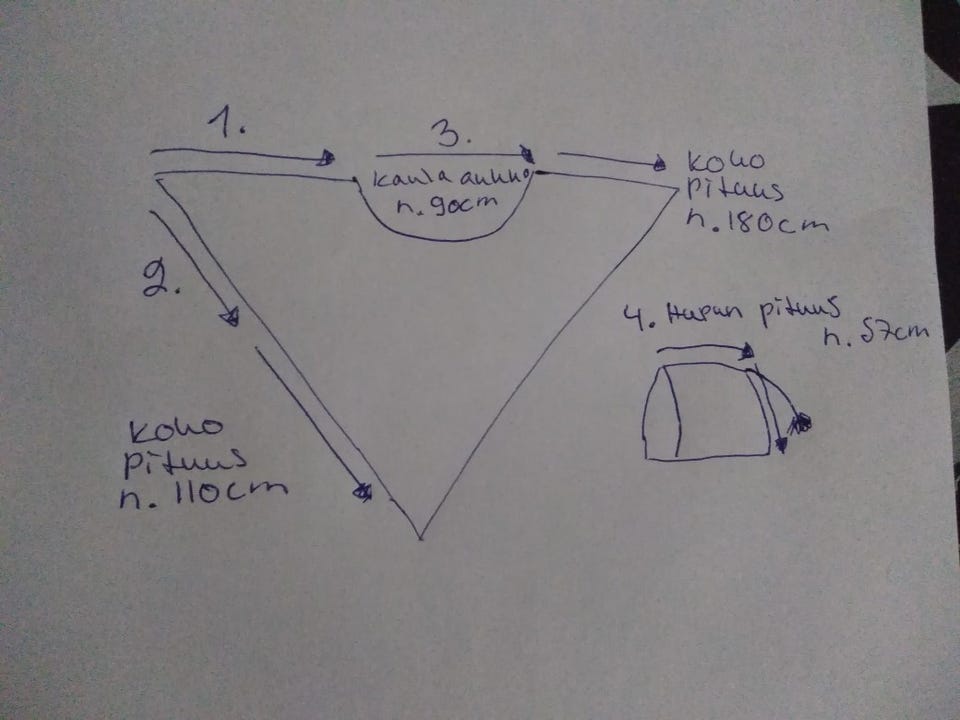 1.
3.
kaula aukko
n. 90cm
koko
pituus
n. 180cm
2.
4. Hupun pituus
n. 57cm
koko
pituus
n. 110cm